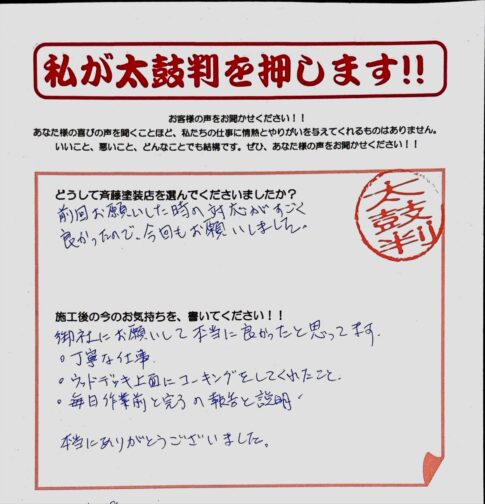 私が太鼓判を押します!!
お客様の声をお聞かせください！！
あなた様の喜びの声を聞くことほど、私たちの仕事に情熱とやりがいを与えてくれるものはありません。
いいこと、悪いこと、どんなことでも結構です。ぜひ、あなた様の声をお聞かせください！！
太鼓判
どうして斉藤塗装店を選んでくださいましたか？
前回お願いした時の対応がすごく
良かったので、今回もお願いしました。
施工後の今のお気持ちを、書いてください！！
御社にお願いして本当に良かったと思ってます.
・丁寧な仕事.
・ウッドデッキ上面にコーキングをしてくれたこと.
・毎日作業前と完了の報告と説明.
本当にありがとうございました。